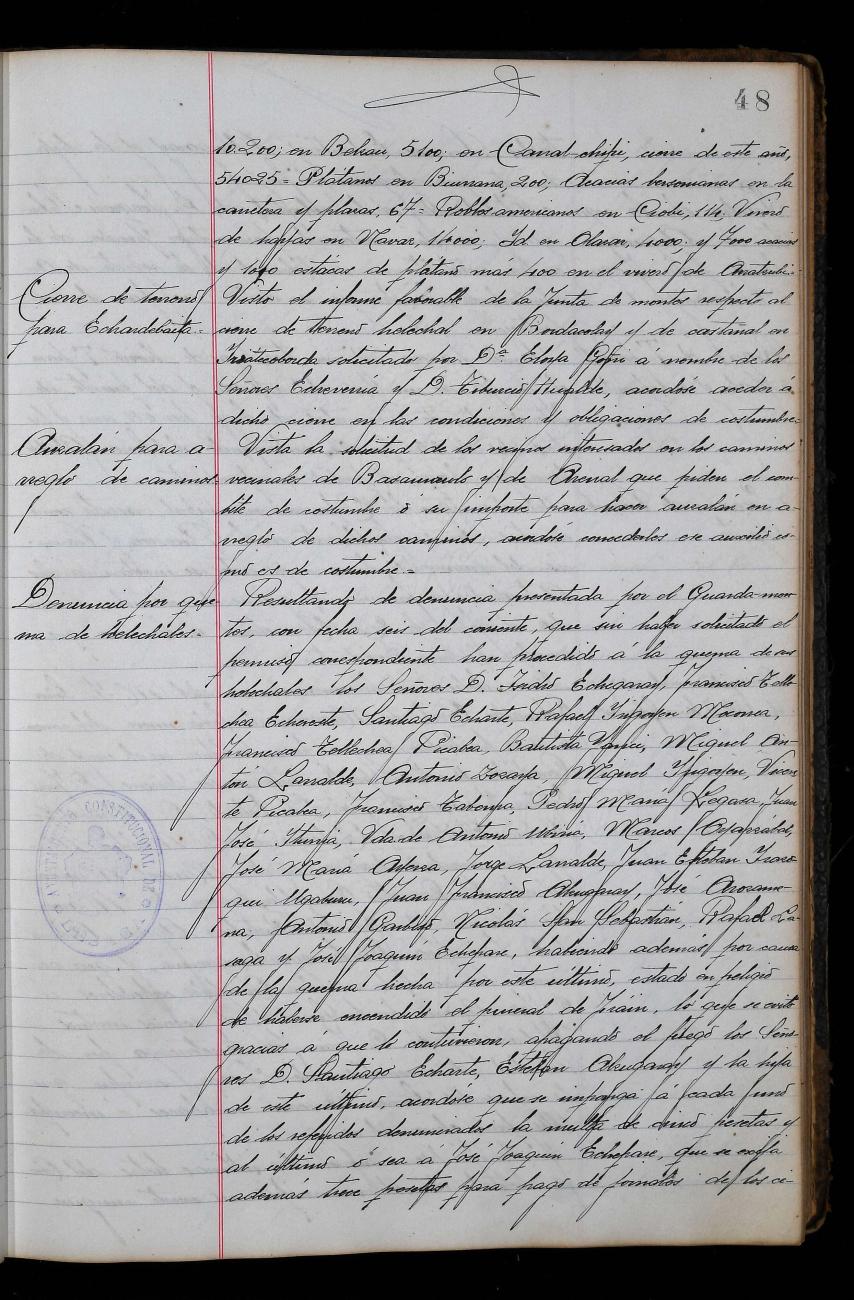 48
10.200; en Bekau, 5100; en Canal-chipi, cierre de este año,
54025 = Platanos en Biurrana, 200; Acacias bersonianas en la
carretera y plazas, 67 = Robles americanos en Ciobi, 114. Vivero
de hayas en Navar, 14000; Id. en Olaran, 4000; y 7000 acacias
y 1000 estacas de platano más 400 en el vivero de
Cierre de terreno
para Echardebaita.
Visto el informe favorable de la Junta de montes respecto al
cierre de terreno helechal en Bordacolay y de castañal en
solicitado por Dª Eloysa Goñi a nombre de los
Señores Echeverria y D. Tiburcio Hualde, acordóse acceder á
dicho cierre en las condiciones y obligaciones de costumbre.
Auzalán para a-
rreglo de caminos.
Vista la solicitud de los vecinos interesados en los caminos
vecinales de y de Arenal que piden el con-
bite de costumbre ó su importe para hacer auzalán en a-
rreglo de dichos caminos, acordóse concederles ese auxilio co-
mo es de costumbre.=
Denuncia por que-
ma de helechales.
Resultando de denuncia presentada por el Guarda-mon-
tes, con fecha seis del corriente, que sin haber solicitado el
permiso correspondiente han procedido á la quema de sus
helechales los Señores D. Isidro Echegaray, Francisco Telle-
chea Echeveste, Santiago Echarte, Rafael Irigoyen Mocorrea,
Francisco Tellechea Picabea, Bautista Yanci, Miguel An-
ton Larralde, Antonio Zocaya, Miguel Irigoyen, Vicen-
te Picabea, Francisco Taberna, Pedro Maria Legasa, Juan
José Iturria, Vda de Antonio Ubiria, Marcos Oyarzabal,
José Mariá Alzera, Jorge Larralde, Juan Esteban Iraze-
qui Ugaburu, Juan Francisco Abrugaray, José Arozame-
na, Antonio Ganbero, Nicolás San Sebastián, Rafael La-
saga y José Joaquín Echepare, habiendo además por causa
de la quema hecha por este último, estado en peligro
de haberse encendido el pineral de Frain, lo que se evitó
gracias á que lo contuvieron, apagando el fuego los Seño-
res D. Santiago Echarte, Esteban Abrugaray y la hija
de este último, acordóse que se imponga á cada uno
de los referidos denunciados la multa de cinco pesetas y
al último ó sea á José Joaquín Echepare, que se exija
además trece pesetas para pago de jornales de los ci-
AYUNTAMIENTO CONSTITUCIONAL DE